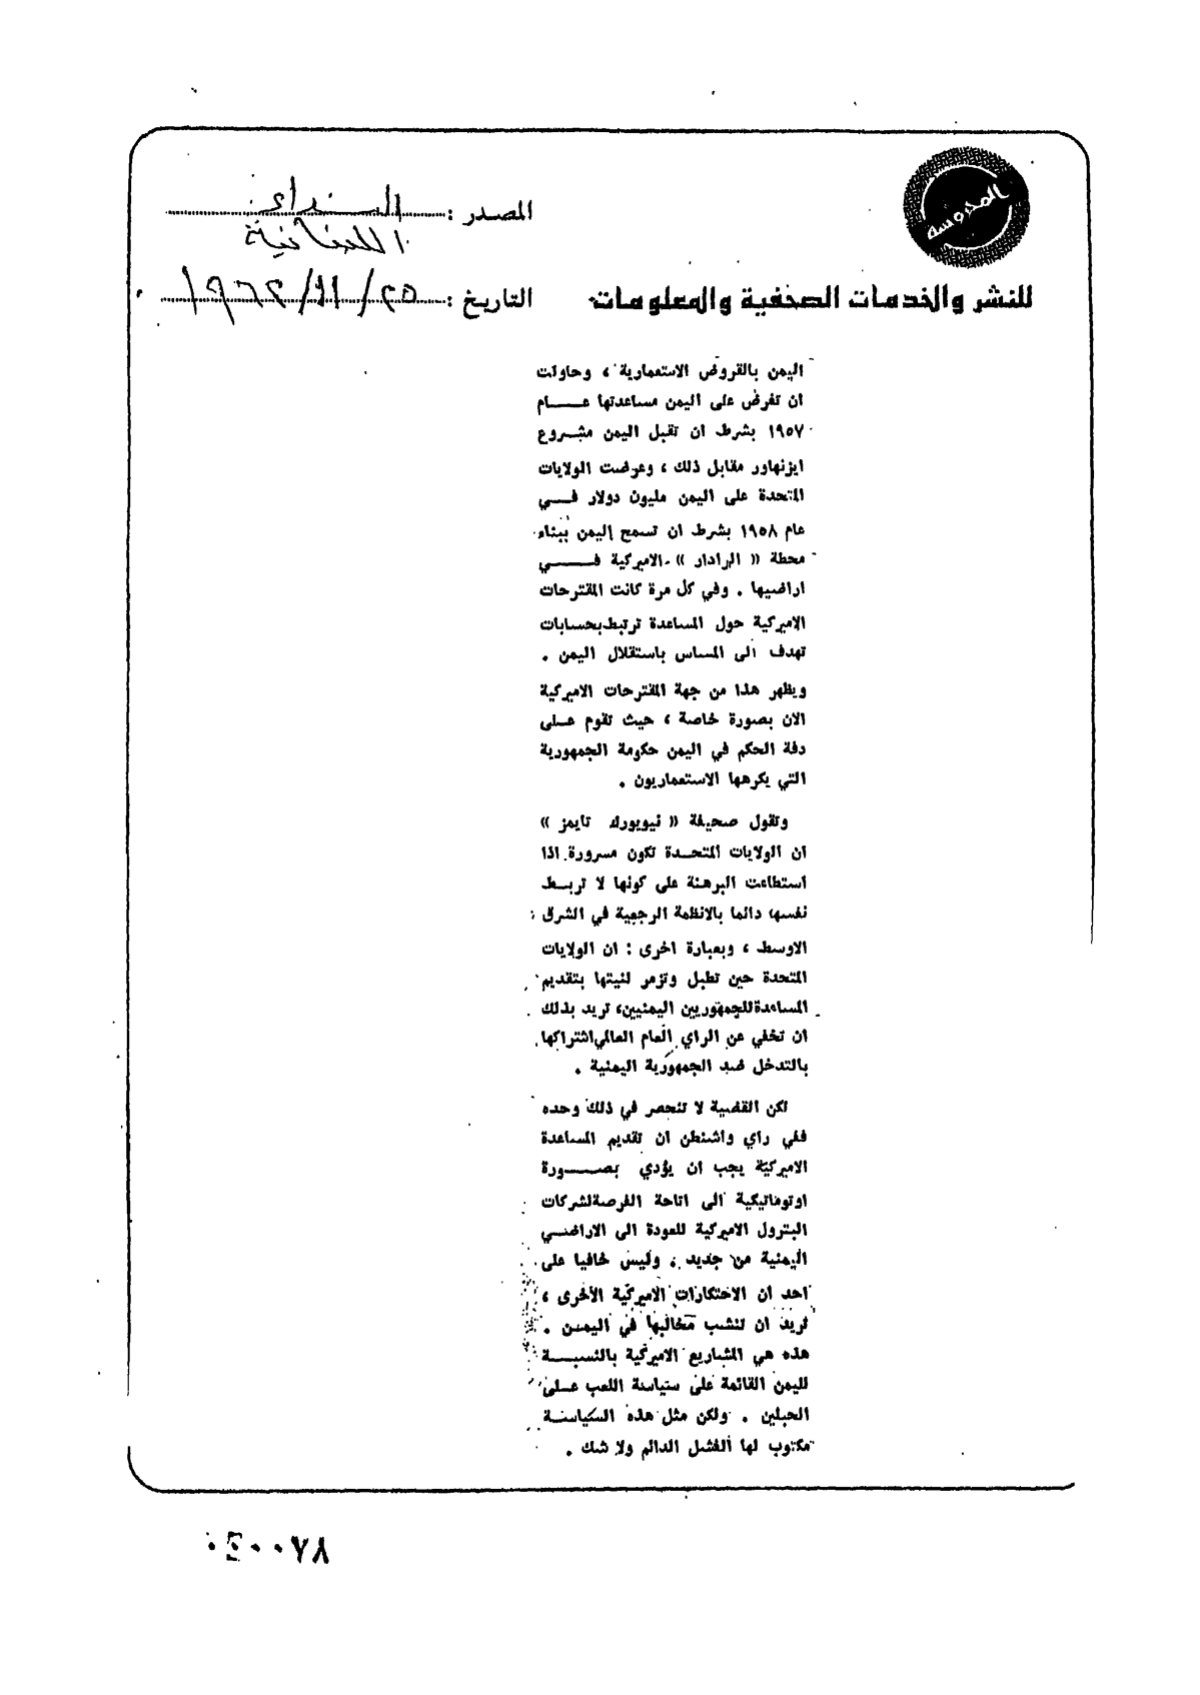 المحروسة
المصدر : النداء
اللبنانية
للنشر والخدمات الصحفية والمعلومات
التاريخ : ٢٥/١١/١٩٦٢
اليمن بالقروض الاستعمارية ، وحاولت
ان تفرض على اليمن مساعدتها عـــام
١٩٥٧ بشرط ان تقبل اليمن مشـروع
ايزنهاور مقابل ذلك ، وعرضت الولايات
المتحدة على اليمن مليون دولار فــي
عام ١٩٥٨ بشرط ان تسمح اليمن ببناء
محطة « الرادار » الاميركية فــــي
اراضيها . وفي كل مرة كانت المقترحات
الاميركية حول المساعدة ترتبط بحسابات
تهدف الى المساس باستقلال اليمن .
ويظهر هذا من جهة المقترحات الاميركية
الان بصورة خاصة ، حيث تقوم عـلى
دفة الحكم في اليمن حكومة الجمهورية
التي يكرهها الاستعماريون .
وتقول صحيفة « نيويورك تايمز »
ان الولايات المتحـدة تكون مسرورة اذا
استطاعت البرهنة على كونها لا تربـط
نفسها دائما بالانظمة الرجعية في الشرق
الاوسط ، وبعبارة اخرى : ان الولايات
المتحدة حين تطبل وتزمر لنيتها بتقديم
المساعدة للجمهوريين اليمنيين، تريد بذلك
ان تخفي عن الراي العام العالمي اشتراكها
بالتدخل ضد الجمهورية اليمنية .
لكن القضية لا تنحصر في ذلك وحده
ففي راي واشنطن ان تقديم المساعدة
الاميركية يجب ان يؤدي بصــــورة
اوتوماتيكية الى اتاحة الفرصة لشركات
البترول الاميركية للعودة الى الاراضـي
اليمنية من جديد . وليس خافيا على
احد ان الاحتكارات الاميركية الاخرى ،
تريد ان تنشب مخالبها في اليمـن .
هذه هي المشاريع الاميركية بالنسبـــة
لليمن القائمة على سياسة اللعب عـلى
الحبلين . ولكن مثل هذه السياسـة
مكتوب لها الفشل الدائم ولا شك .
٠٤٠٠٧٨